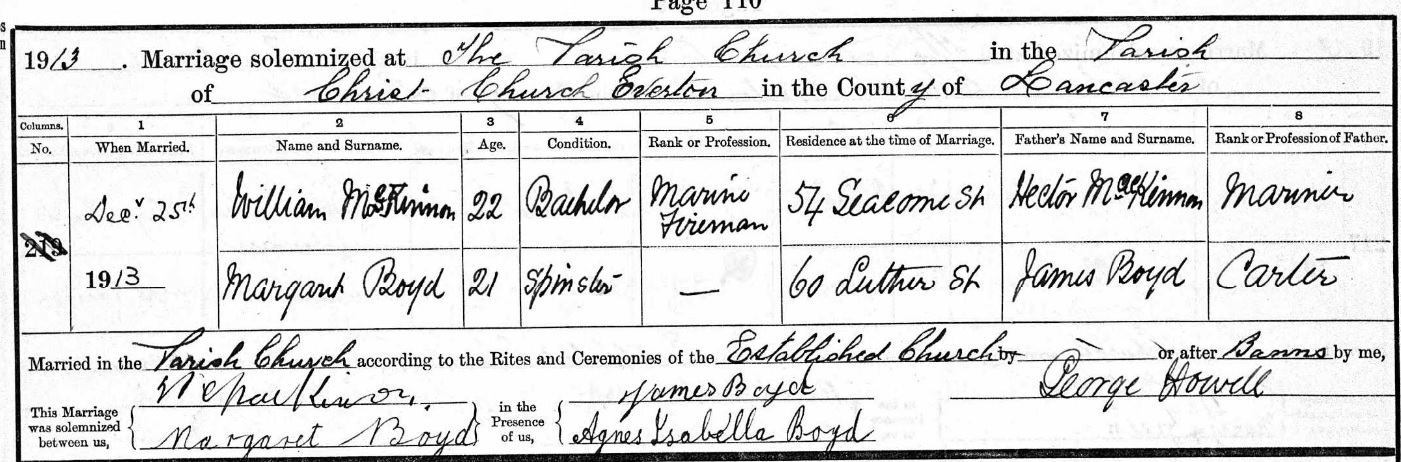 Page 110
1913. Marriage solemnized at The Parish Church in the Parish
of Christ Church Everton in the County of Lancaster
Columns. 1 2 3 4 5 6 7 8
No. When Married. Name and Surname. Age. Condition. Rank or Profession. Residence at the time of Marriage. Father's Name and Surname. Rank or Profession of Father.
219 Decr 25th 1913 William MacKinnon 22 Bachelor Marine Fireman 54 Seacome St Hector MacKinnon Mariner
Margaret Boyd 21 Spinster — 60 Luther St James Boyd Carter
Married in the Parish Church according to the Rites and Ceremonies of the Established Church by — or after Banns by me,
George Howell
This Marriage was solemnized between us, { Wm MacKinnon. Margaret Boyd } in the Presence of us, { James Boyd Agnes Isabella Boyd